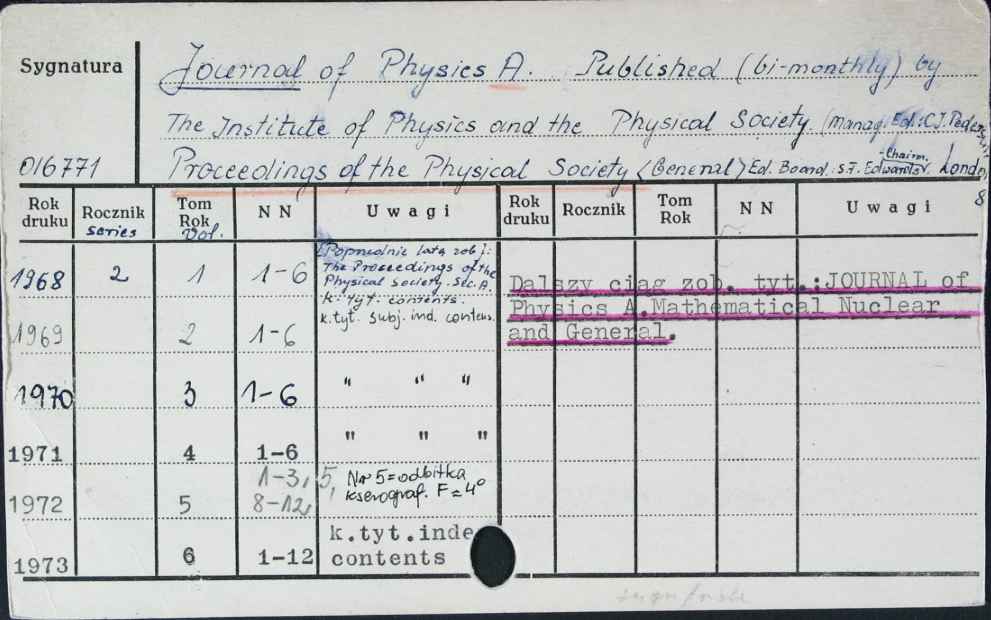 Sygnatura
Journal of Physics A. Published (bi-monthly) by
The Institute of Physics and the Physical Society (manag. Ed.: C.J.
016771 Proceedings of the Physical Society (General) Ed. Board. S.F. Edwards Chairm. Lond
8
Rok druku Rocznik series Tom Rok Vol. NN Uwagi Rok druku Rocznik Tom Rok NN Uwagi
1968 2 1 1-6 [Poprzednie lata zob]:
The Proceedings of the
Physical Society. Sec. A.
k. tyt. contents.
1969 2 1-6 k.tyt. subj. ind. contens.
1970 3 1-6 " " "
1971 4 1-6 " " "
1972 5 1-3, 5, 8-12, Nr 5 = odbitka
kserograf. F = 4°
1973 6 1-12 k.tyt.inde
contents
Dalszy ciąg zob. tyt.:JOURNAL of
Physics A.Mathematical Nuclear
and General.